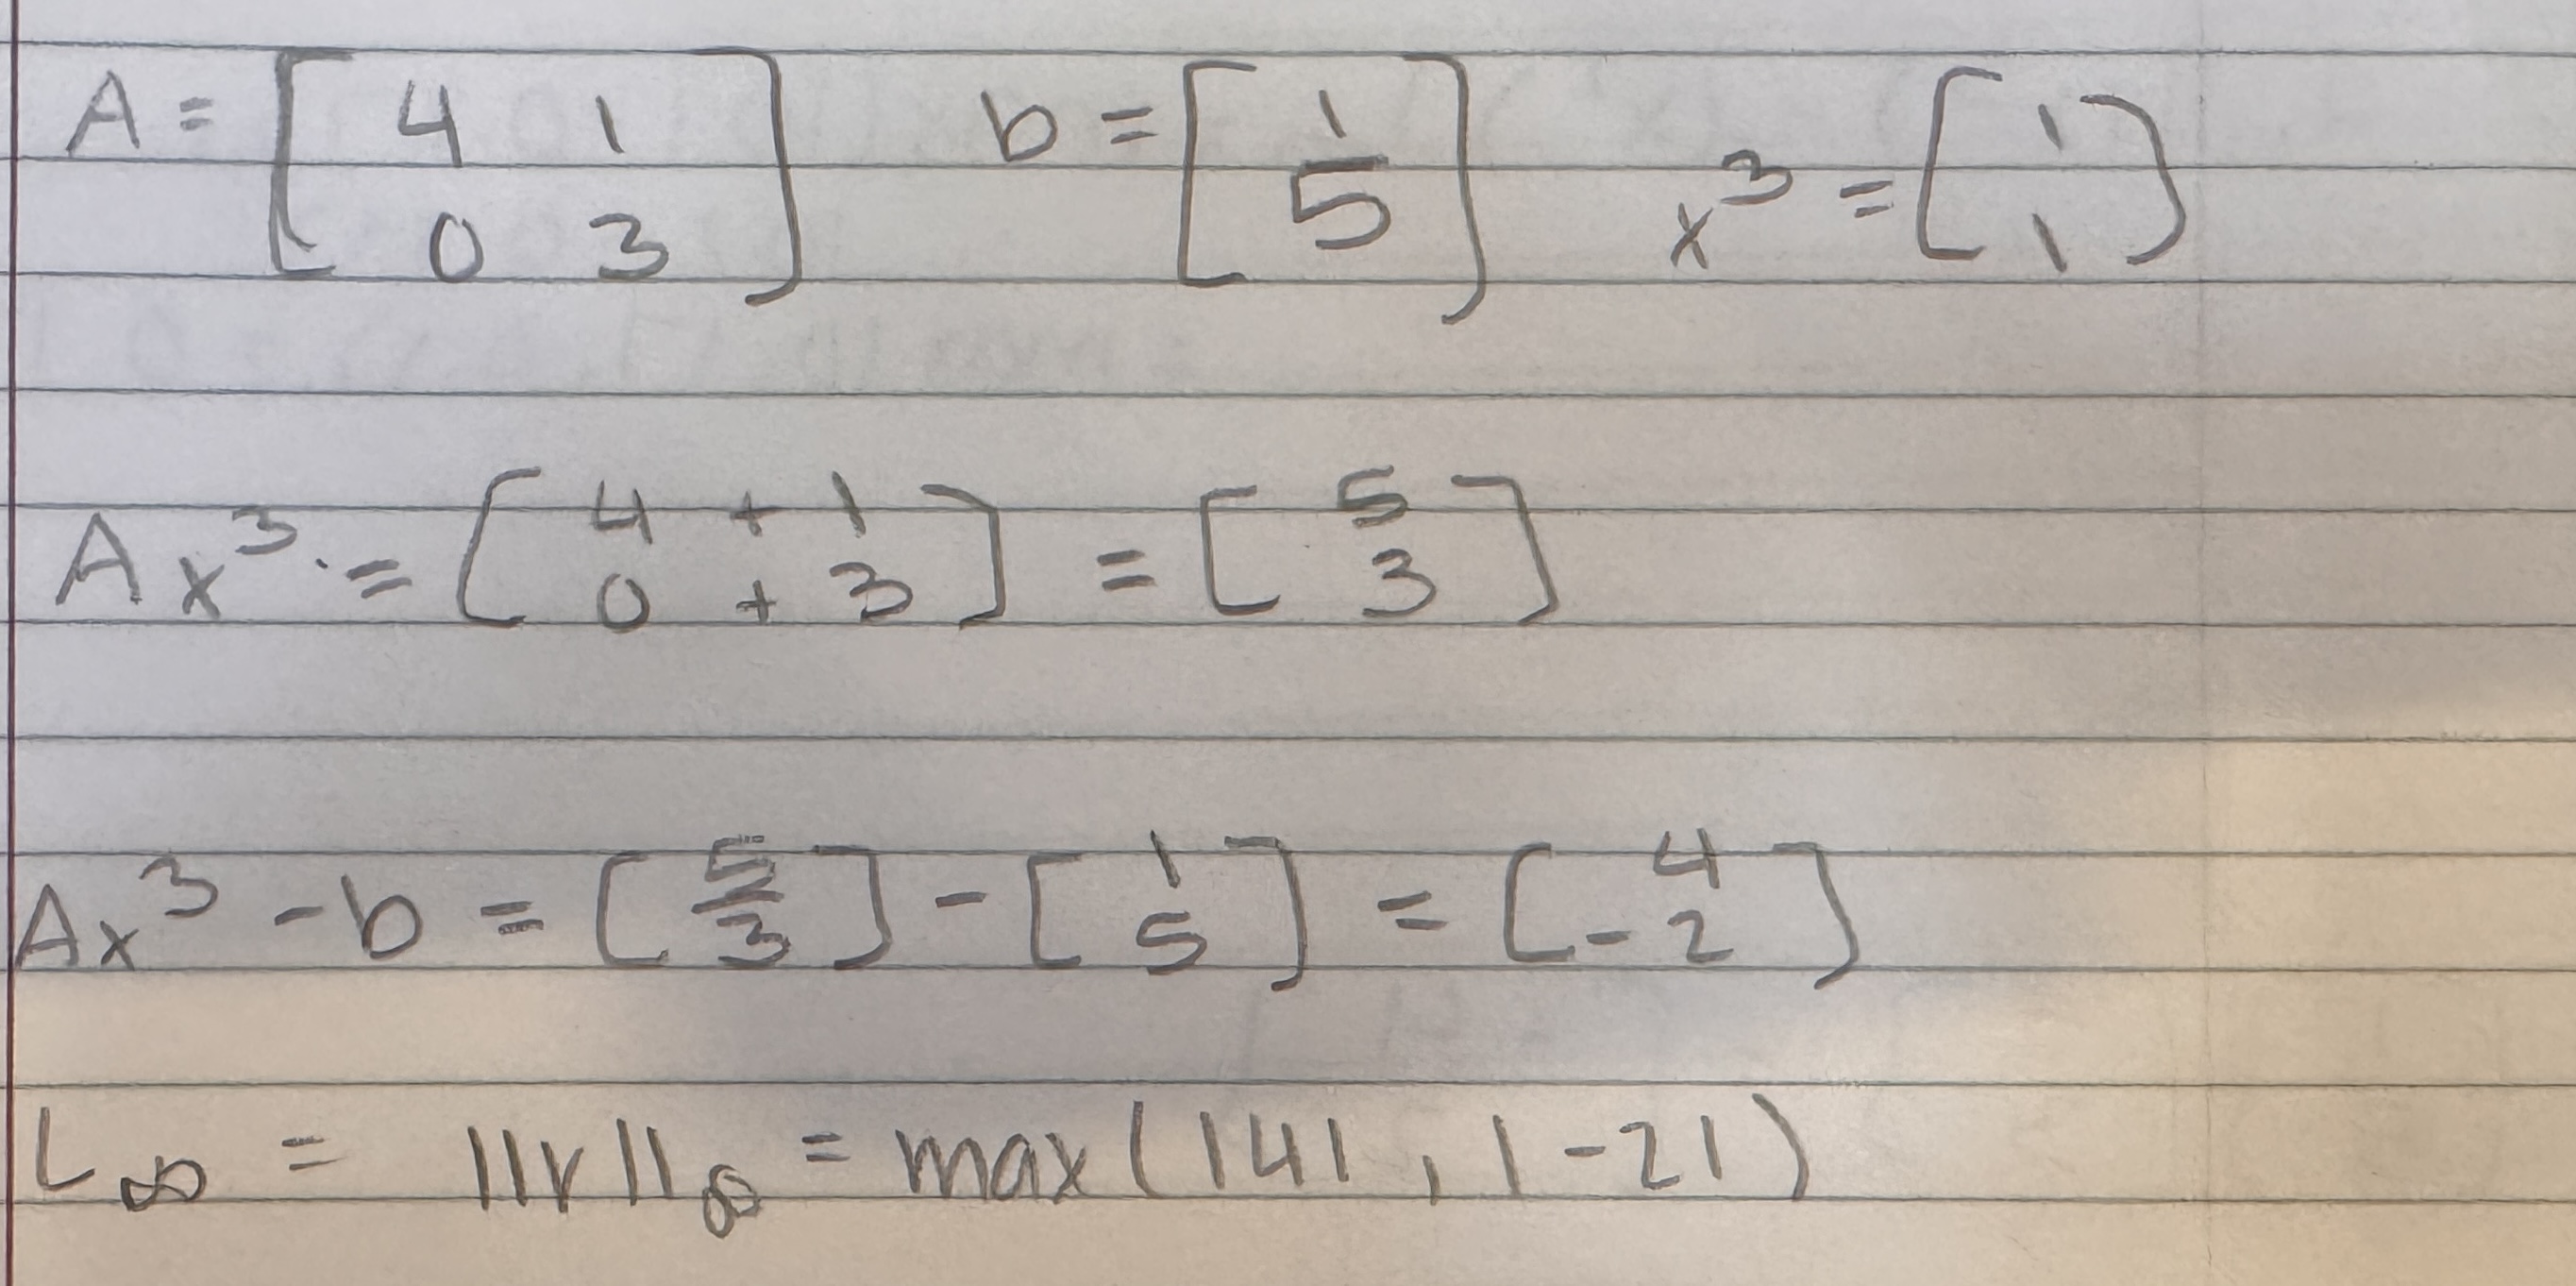 A = [ 4 1 ; 0 3 ] b = [ 1 ; 5 ] x³ = [ 1 ; 1 ]
Ax³ · = [ 4 + 1 ; 0 + 3 ] = [ 5 ; 3 ]
Ax³ - b = [ 5 ; 3 ] - [ 1 ; 5 ] = [ 4 ; -2 ]
L∞ = ||r||∞ = max(|4|, |-2|)